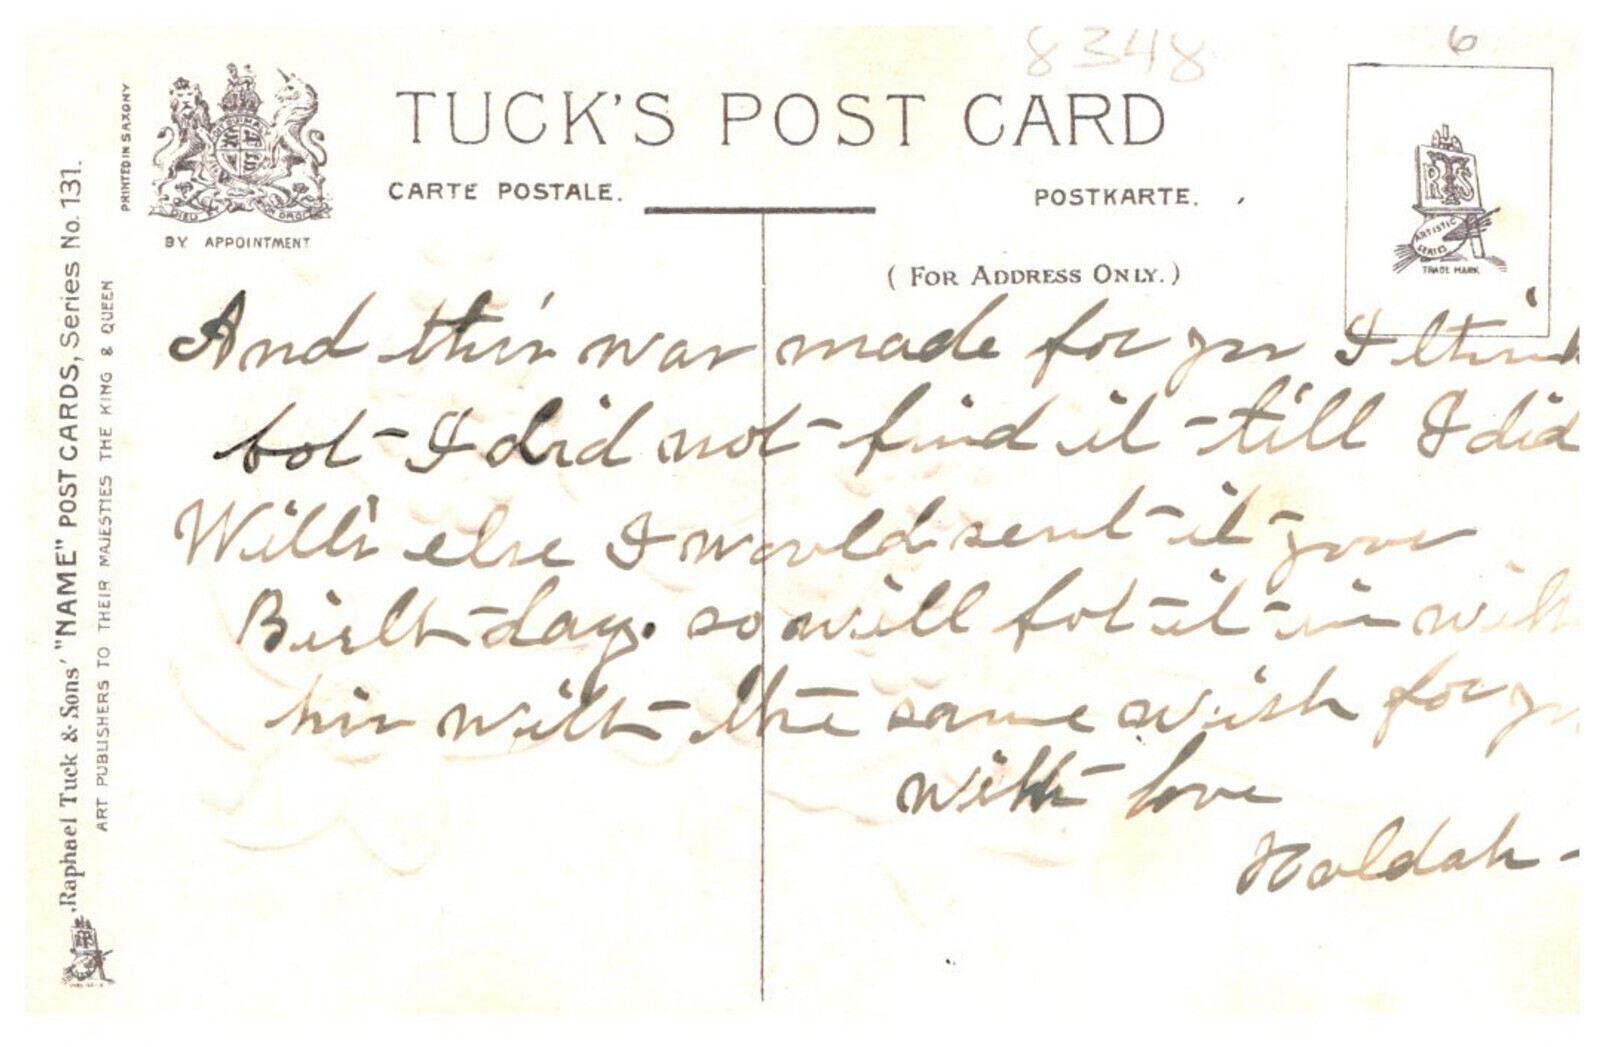 8348
6
TUCK'S POST CARD
CARTE POSTALE.
POSTKARTE.
BY APPOINTMENT
(FOR ADDRESS ONLY.)
PRINTED IN SAXONY
Raphael Tuck & Sons' "NAME" POST CARDS, Series No. 131.
ART PUBLISHERS TO THEIR MAJESTIES THE KING & QUEEN
DIEU ET MON DROIT
RTS
ARTISTIC SERIES
TRADE MARK.
And this was made for you I think
bot I did not find it till I did
Will's else I would sent it your
Birth day. so will pot it in with
his with the same wish for you
with love